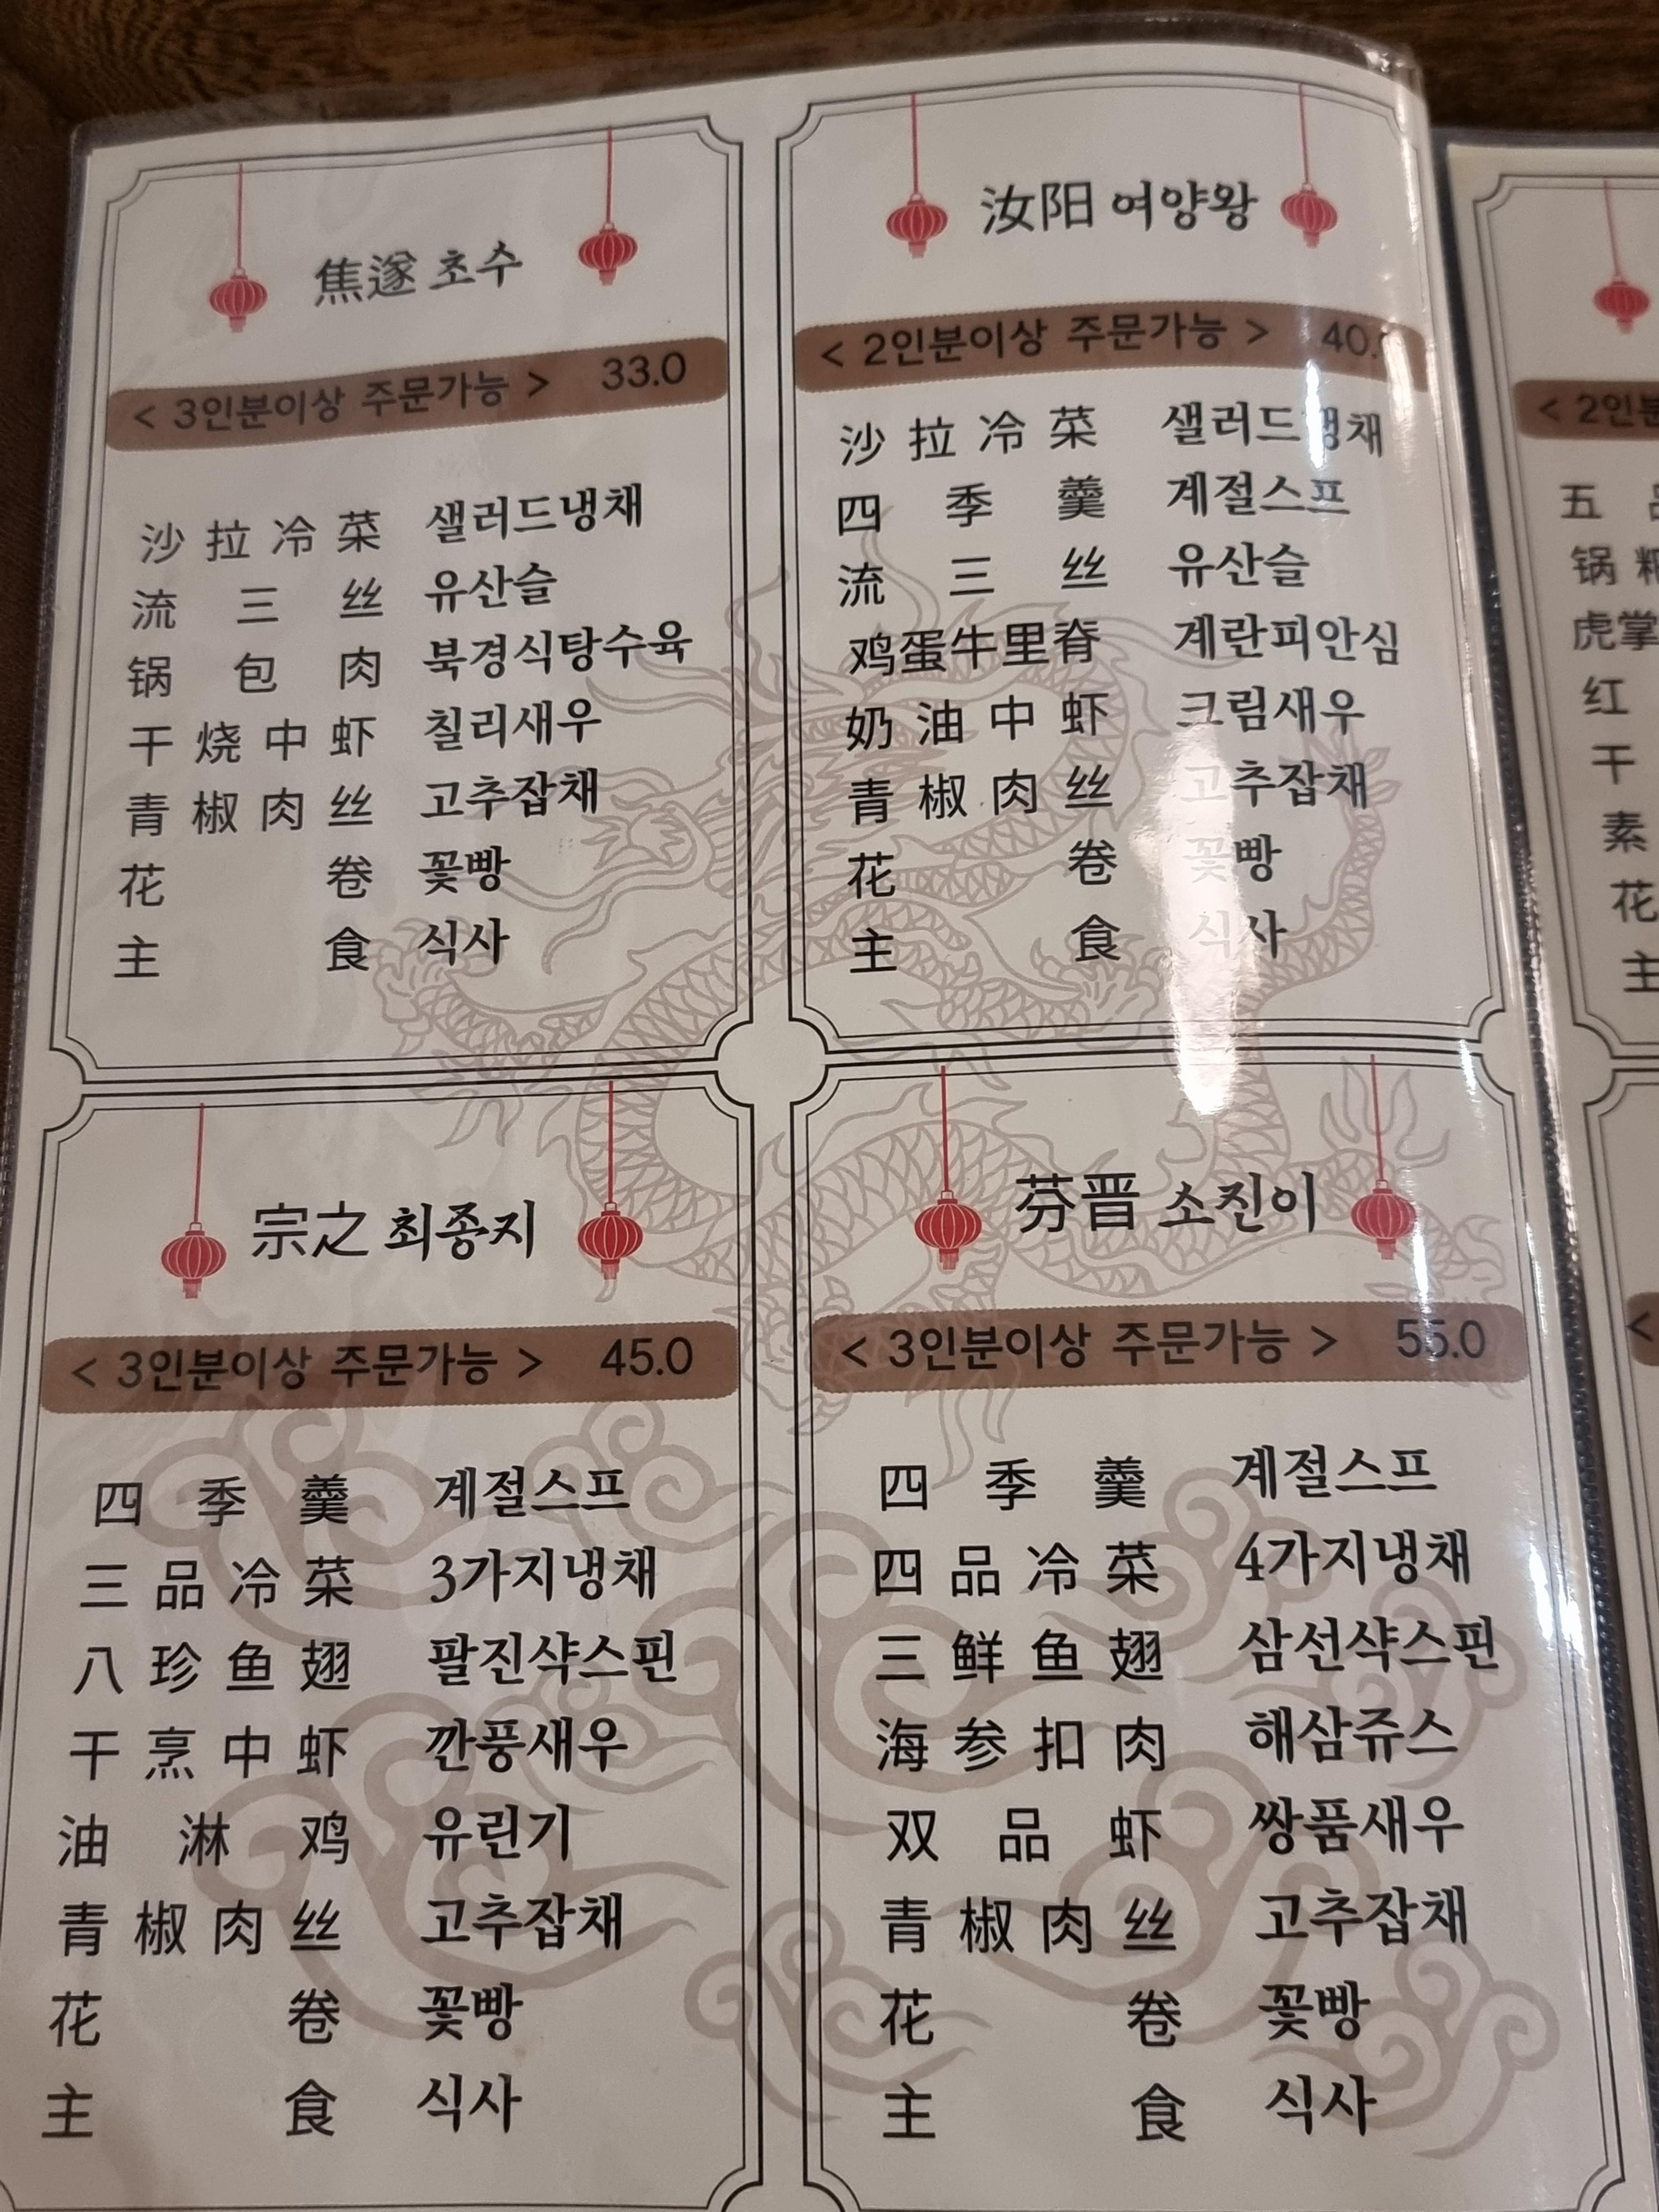 焦遂 초수
< 3인분이상 주문가능 > 33.0
沙拉冷菜 샐러드냉채
流三丝 유산슬
锅包肉 북경식탕수육
干烧中虾 칠리새우
青椒肉丝 고추잡채
花卷 꽃빵
主食 식사
汝阳 여양왕
< 2인분이상 주문가능 > 40.
沙拉冷菜 샐러드냉채
四季羹 계절스프
流三丝 유산슬
鸡蛋牛里脊 계란피안심
奶油中虾 크림새우
青椒肉丝 고추잡채
花卷 꽃빵
主食 식사
宗之 최종지
< 3인분이상 주문가능 > 45.0
四季羹 계절스프
三品冷菜 3가지냉채
八珍鱼翅 팔진샥스핀
干烹中虾 깐풍새우
油淋鸡 유린기
青椒肉丝 고추잡채
花卷 꽃빵
主食 식사
芬晋 소진이
< 3인분이상 주문가능 > 55.0
四季羹 계절스프
四品冷菜 4가지냉채
三鲜鱼翅 삼선샥스핀
海参扣肉 해삼쥬스
双品虾 쌍품새우
青椒肉丝 고추잡채
花卷 꽃빵
主食 식사
< 2인분
五
锅
虎掌
红
干
素
花
主
<